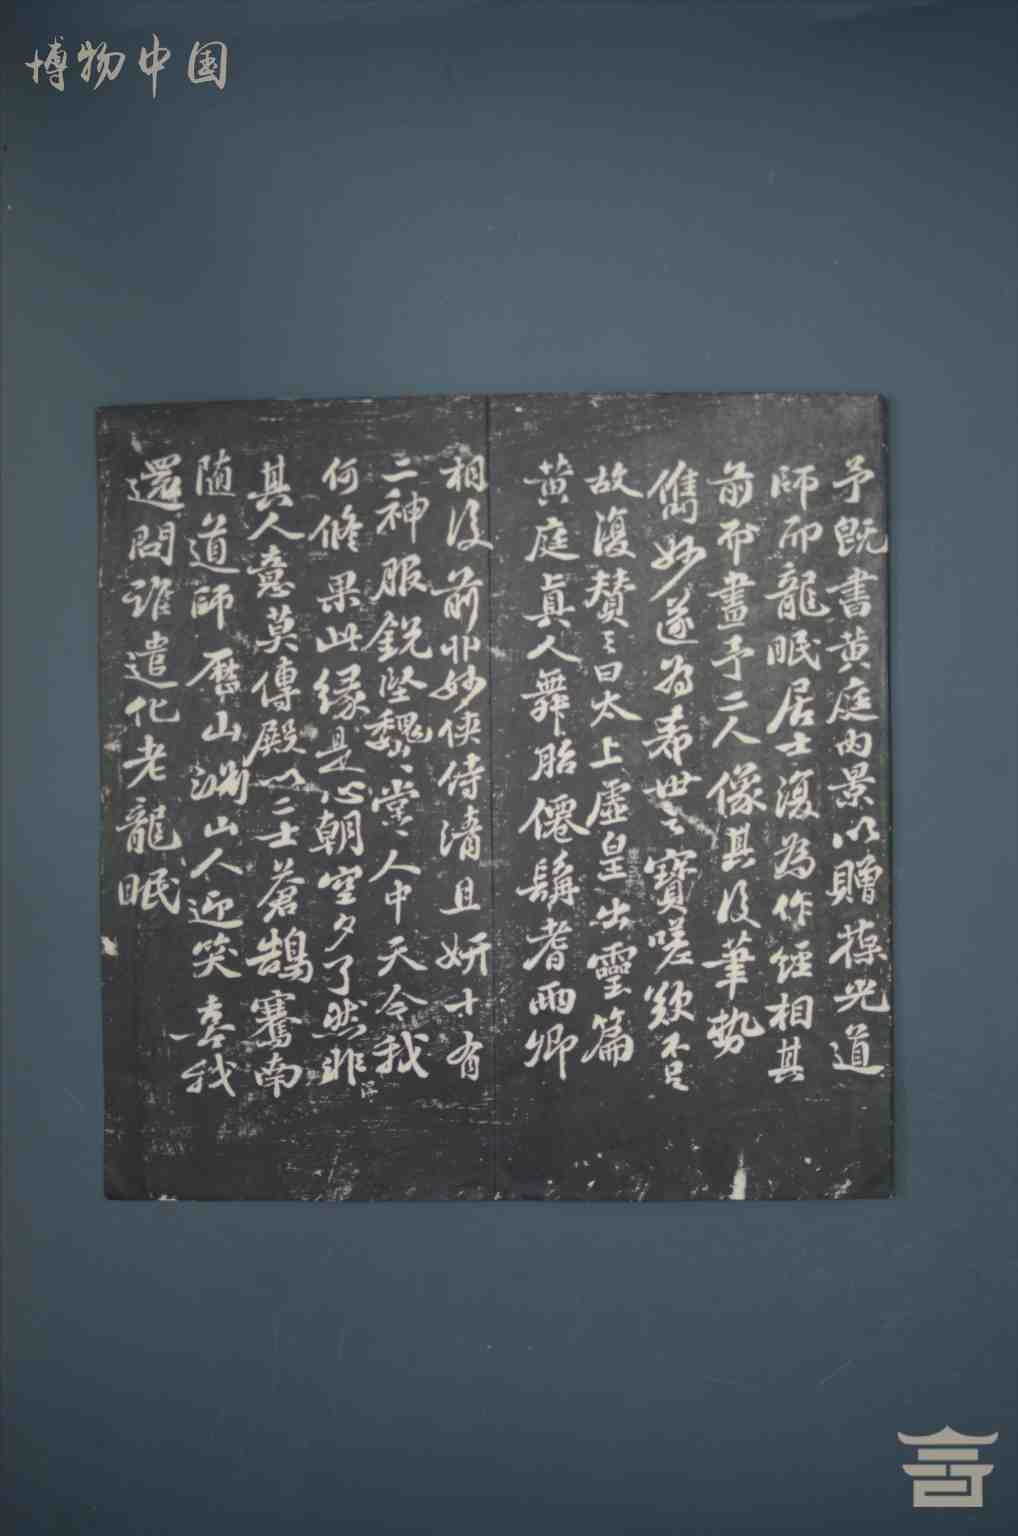 博物中国
予既書黄庭内景以贈葆光道
師而龍眠居士復為作經相其
前而畫予二人像其後筆勢
儁妙遂為希世之寶嗟歎不足
故復贊之曰太上虛皇出靈篇
黄庭真人舞胎僊髯耆兩卿
相後前丱妙俠侍清且妍十有
二神服銳堅巍巍堂堂人中天令我
何脩果此緣是心朝空夕了然非
其人意莫傳殿以二士蒼鵠騫南
随道師歷山淵山人迎笑喜我
還問誰遣化老龍眠